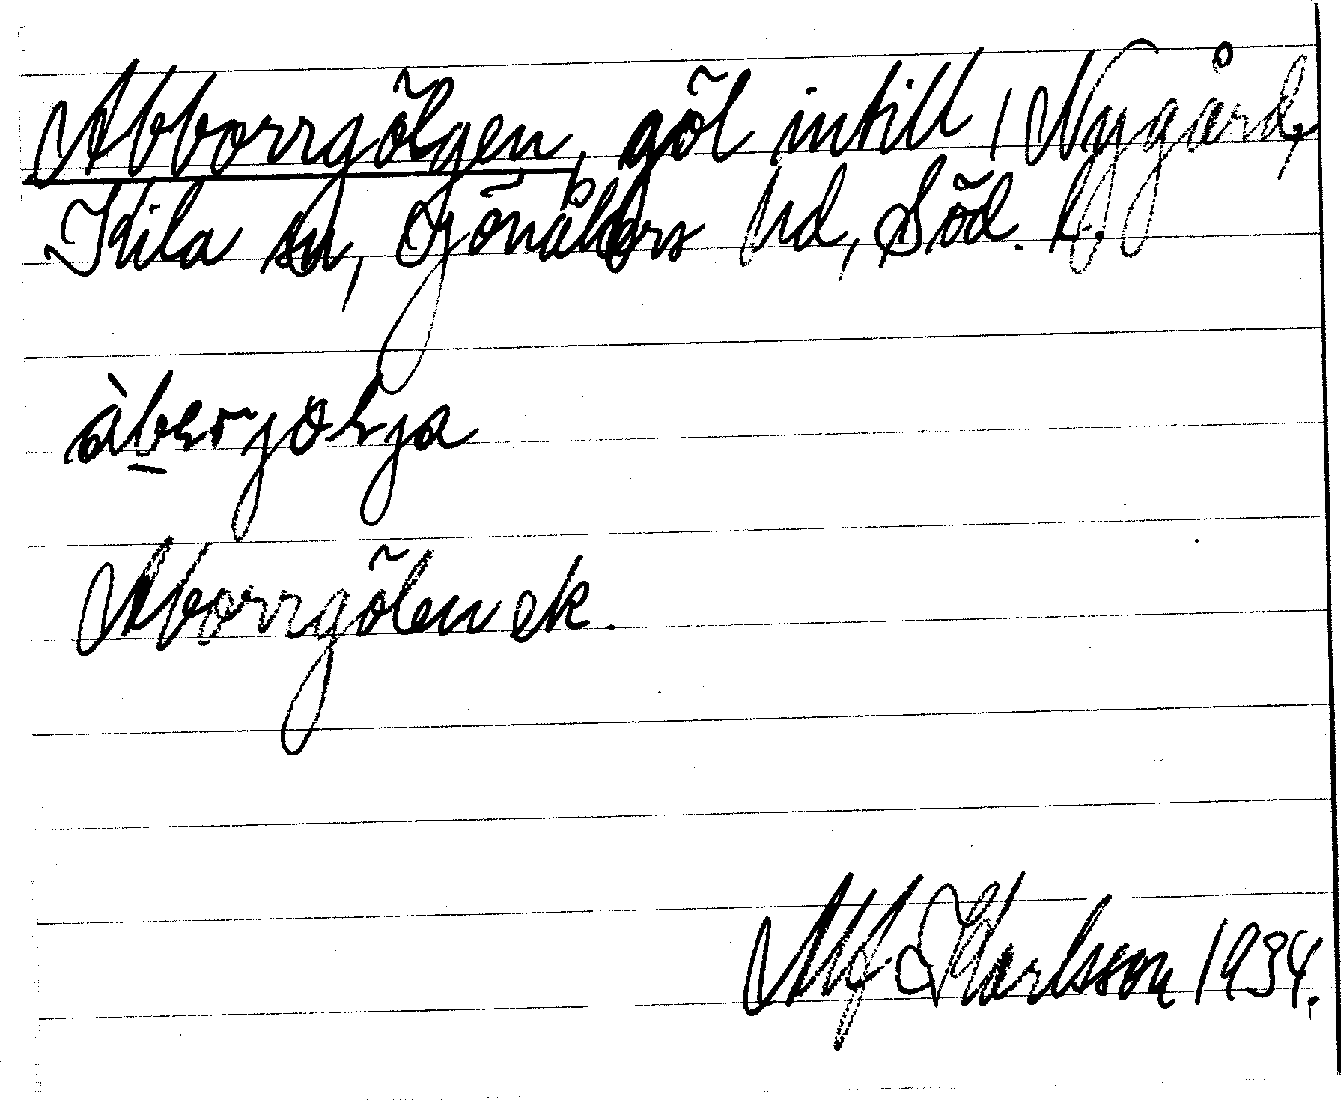 Abborrgölgen, göl intill / Nygård,
Kila sn, Ojönåkers hd, Söd. l.
àberjölja
Aborrgölen ek.
Alf Karlsson 1934.